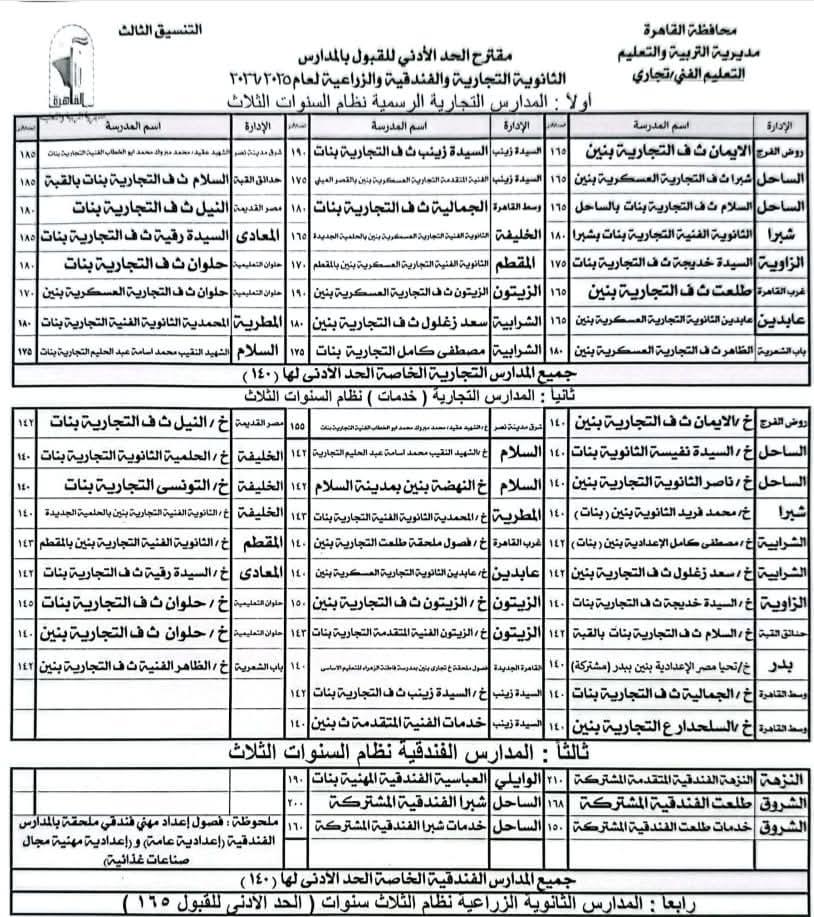 محافظة القاهرة
مديرية التربية والتعليم
التعليم الفني/تجاري
التنسيق الثالث
القاهرة
مقترح الحد الأدني للقبول بالمدارس
الثانوية التجارية والفندقية والزراعية لعام ٢٠٢٦/٢٠٢٥
أولاً : المدارس التجارية الرسمية نظام السنوات الثلاث
الإدارة اسم المدرسة الإدارة اسم المدرسة الإدارة اسم المدرسة
روض الفرج الايمان ث ف التجارية بنين ١٦٥ السيدة زينب السيدة زينب ث ف التجارية بنات ١٩٠ شرق مدينة نصر الشهيد عقيد/ محمد مبروك محمد ابو الخطاب الفنية التجارية بنات ١٨٥
الساحل شبرا ث ف التجارية العسكرية بنين ١٦٥ السيدة زينب الفنية المتقدمة التجارية العسكرية بنين بالقصر العيني ١٧٥ حدائق القبة السلام ث ف التجارية بنات بالقبة ١٨٥
الساحل السلام ث ف التجارية بنات بالساحل ١٦٥ وسط القاهرة الجمالية ث ف التجارية بنات ١٨٠ مصر القديمة النيل ث ف التجارية بنات ١٨٠
شبرا الثانوية الفنية التجارية بنات بشبرا ١٨٠ الخليفة الثانوية الفنية التجارية العسكرية بنين بالحلمية الجديدة ١٦٥ المعادى السيدة رقية ث ف التجارية بنات ١٨٥
الزاوية السيدة خديجة ث ف التجارية بنات ١٧٥ المقطم الثانوية الفنية التجارية العسكرية بنين بالمقطم ١٧٠ حلوان التعليمية حلوان ث ف التجارية بنات ١٨٠
غرب القاهرة طلعت ث ف التجارية بنين ١٦٥ الزيتون الزيتون ث ف التجارية العسكرية بنين ١٩٠ حلوان التعليمية حلوان ث ف التجارية العسكرية بنين ١٧٠
عابدين عابدين الثانوية التجارية العسكرية بنين ١٦٥ الشرابية سعد زغلول ث ف التجارية العسكرية بنين ١٨٠ المطرية المحمدية الثانوية الفنية التجارية بنات ١٨٠
باب الشعرية الظاهر ث ف التجارية العسكرية بنين ١٨٠ الشرابية مصطفى كامل التجارية بنات ١٧٥ السلام الشهيد النقيب محمد أسامة عبد الحليم التجارية بنات ١٧٥
جميع المدارس التجارية الخاصة الحد الادنى لها (١٤٠)
ثانيا : المدارس التجارية ( خدمات ) نظام السنوات الثلاث
روض الفرج خ /الايمان ث ف التجارية بنين ١٤٠ شرق مدينة نصر خ /الشهيد عقيد/ محمد مبروك محمد ابو الخطاب الفنية التجارية بنات ١٥٥ مصر القديمة خ / النيل ث ف التجارية بنات ١٤٢
الساحل خ / السيدة نفيسة الثانوية بنات ١٤٠ السلام خ /الشهيد النقيب محمد أسامة عبد الحليم التجارية ١٤٢ الخليفة خ / الحلمية الثانوية التجارية بنات ١٤٠
الساحل خ / ناصر الثانوية التجارية بنين ١٤٠ السلام خ النهضة بنين بمدينة السلام ١٤٢ الخليفة خ /التونسى التجارية بنات ١٤٠
شبرا خ / محمد فريد الثانوية بنين (بنات) ١٤٠ المطرية خ / المحمدية الثانوية الفنية التجارية بنات ١٤٣ الخليفة خ / الثانوية الفنية التجارية بنين بالحلمية الجديدة ١٤٠
الشرابية خ / مصطفى كامل الإعدادية بنين (بنات) ١٤٢ غرب القاهرة خ / فصول ملحقة طلعت التجارية بنين ١٤٠ المقطم خ / الثانوية الفنية التجارية بنين بالمقطم ١٤٣
الشرابية خ / سعد زغلول ث ف التجارية بنين ١٤٢ عابدين خ / عابدين الثانوية التجارية العسكرية بنين ١٤٠ المعادى خ / السيدة رقية ث ف التجارية بنات ١٤٢
الزاوية خ / السيدة خديجة ث ف التجارية بنات ١٤٠ الزيتون خ / الزيتون ث ف التجارية بنين ١٥٠ حلوان التعليمية خ / حلوان ث ف التجارية بنات ١٤٥
حدائق القبة خ / السلام ث ف التجارية بنات بالقبة ١٤٢ الزيتون خ / الزيتون الفنية المتقدمة التجارية بنات ١٤٣ حلوان التعليمية خ / حلوان ث ف التجارية بنين ١٤٠
بدر خ /تحيا مصر الإعدادية بنين ببدر (مشتركة) ١٤٠ القاهرة الجديدة فصول ملحقة خ تجارى بنين بمدرسة فاطمة الزهراء للتعليم الاساسى ١٤٠ باب الشعرية خ / الظاهر الفنية ث ف التجارية بنين ١٤٢
وسط القاهرة خ / الجمالية ث ف التجارية بنات ١٤٠ السيدة زينب خ / السيدة زينب ث ف التجارية بنات ١٤٢
وسط القاهرة خ / السلحدار ع التجارية بنين ١٤٠ السيدة زينب خدمات الفنية المتقدمة ث بنين ١٤٠
ثالثاً : المدارس الفندقية نظام السنوات الثلاث
النزهة النزهة الفندقية المتقدمة المشتركة ٢١٠ الوايلي العباسية الفندقية المهنية بنات ١٩٠
الشروق طلعت الفندقية المشتركة ١٦٨ الساحل شبرا الفندقية المشتركة ٢٠٠
الشروق خدمات طلعت الفندقية المشتركة ١٥٠ الساحل خدمات شبرا الفندقية المشتركة ١٦٠
ملحوظة : فصول إعداد مهني فندقي ملحقة بالمدارس
الفندقية (إعدادية عامة) و (إعدادية مهنية مجال
صناعات غذائية)
جميع المدارس الفندقية الخاصة الحد الادنى لها (١٤٠)
رابعا : المدارس الثانوية الزراعية نظام الثلاث سنوات ( الحد الأدنى للقبول ١٦٥ )